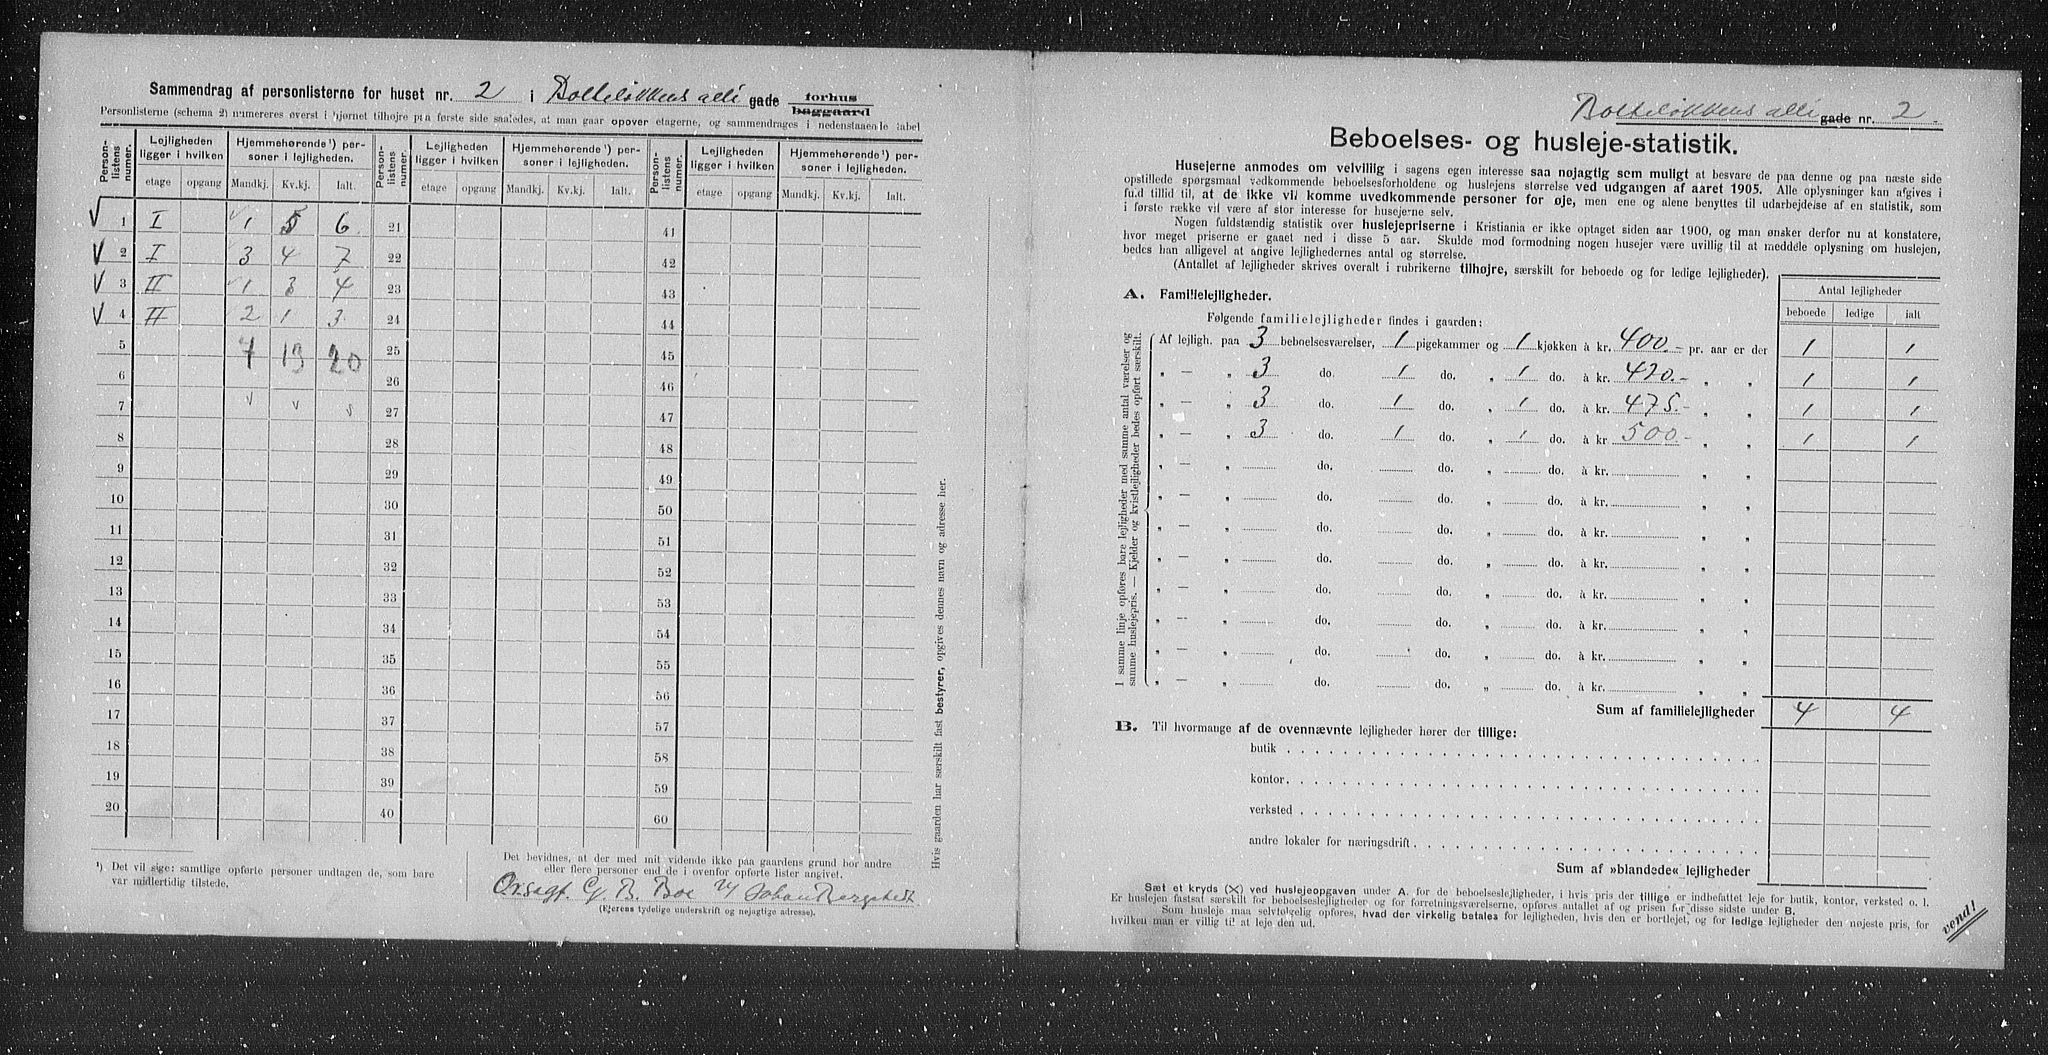 Sammendrag af personlisterne for huset nr. 2 i Bolteløkkens alli gade forhus baggaard
Personlisterne (schema 2) numereres øverst i hjørnet tilhøjre paa første side saaledes, at man gaar opover etagerne, og sammendrages i nedenstaaende tabel
Person-listens numer. Lejligheden ligger i hvilken Hjemmehørende¹) personer i lejligheden. Person-listens numer. Lejligheden ligger i hvilken Hjemmehørende¹) personer i lejligheden. Person-listens numer. Lejligheden ligger i hvilken Hjemmehørende¹) personer i lejligheden.
etage opgang Mandkj. Kv.kj. Ialt. etage opgang Mandkj. Kv.kj. Ialt. etage opgang Mandkj. Kv.kj. Ialt.
1 I 1 5 6 21 41
2 I 3 4 7 22 42
3 II 1 3 4 23 43
4 II 2 1 3 24 44
5 7 13 20 25 45
6 26 46
7 27 47
8 28 48
9 29 49
10 30 50
11 31 51
12 32 52
13 33 53
14 34 54
15 35 55
16 36 56
17 37 57
18 38 58
19 39 59
20 40 60
¹) Det vil sige: samtlige opførte personer undtagen de, som bare
var midlertidig tilstede.
Det bevidnes, at der med mit vidende ikke paa gaardens grund bor andre
eller flere personer end de i ovenfor opførte lister angivet.
Orsagf. G. B. Boe Johan Bergstedt
(Ejerens tydelige underskrift og nøjagtige adresse).
Hvis gaarden har særskilt fast bestyrer, opgives dennes navn og adresse her.
Bolteløkkens alli gade nr. 2.
Beboelses- og husleje-statistik.
Husejerne anmodes om velvillig i sagens egen interesse saa nøjagtig som muligt at besvare de paa denne og paa næste side
opstillede spørgsmaal vedkommende beboelsesforholdene og huslejens størrelse ved udgangen af aaret 1905. Alle oplysninger kan afgives i
fuld tillid til, at de ikke vil komme uvedkommende personer for øje, men ene og alene benyttes til udarbejdelse af en statistik, som
i første række vil være af stor interesse for husejerne selv.
Nogen fuldstændig statistik over huslejepriserne i Kristiania er ikke optaget siden aar 1900, og man ønsker derfor nu at konstatere,
hvor meget priserne er gaaet ned i disse 5 aar. Skulde mod formodning nogen husejer være uvillig til at meddele oplysning om huslejen,
bedes han alligevel at angive lejlighedernes antal og størrelse.
(Antallet af lejligheder skrives overalt i rubrikerne tilhøjre, særskilt for beboede og for ledige lejligheder).
Antal lejligheder
beboede ledige ialt
A. Familielejligheder.
Følgende familielejligheder findes i gaarden:
I samme linje opføres bare lejligheder med samme antal værelser og
samme huslejepris. — Kjelder og kvistlejligheder bedes opført særskilt.
Af lejligh. paa 3 beboelsesværelser, 1 pigekammer og 1 kjøkken à kr. 400.- pr. aar er der 1 1
„ — „ 3 do. 1 do. „ 1 do. à kr. 420.- „ „ 1 1
„ — „ 3 do. 1 do. „ 1 do. à kr. 475.- „ „ 1 1
„ — „ 3 do. 1 do. „ 1 do. à kr 500.- „ „ 1 1
„ — „ do. do. „ do. à kr. „ „
„ — „ do. do. „ do. à kr. „ „
„ — „ do. do. „ do. à kr. „ „
„ — „ do. do. „ do. à kr. „ „
„ — „ do. do. „ do. à kr. „ „
„ — „ do. do. „ do. à kr. „ „
„ — „ do. do. „ do. à kr. „ „
„ — „ do. do. „ do. à kr. „ „
Sum af familielejligheder 4 4
B. Til hvormange af de ovennævnte lejligheder hører der tillige:
butik
kontor
verksted
andre lokaler for næringsdrift
Sum af »blandede« lejligheder
Sæt et kryds (X) ved huslejeopgaven under A. for de beboelseslejligheder, i hvis pris der tillige er indbefattet leje for butik, kontor, verksted o. l.
Er huslejen fastsat særskilt for beboelseslejligheder og for forretningsværelserne, opføres antallet af og prisen for disse sidste under B.
Som husleje maa selvfølgelig opføres, hvad der virkelig betales for lejligheden, hvis den er bortlejet, og for ledige lejligheder den nøjeste pris, for
hvilken man er villig til at leje den ud.
vend!